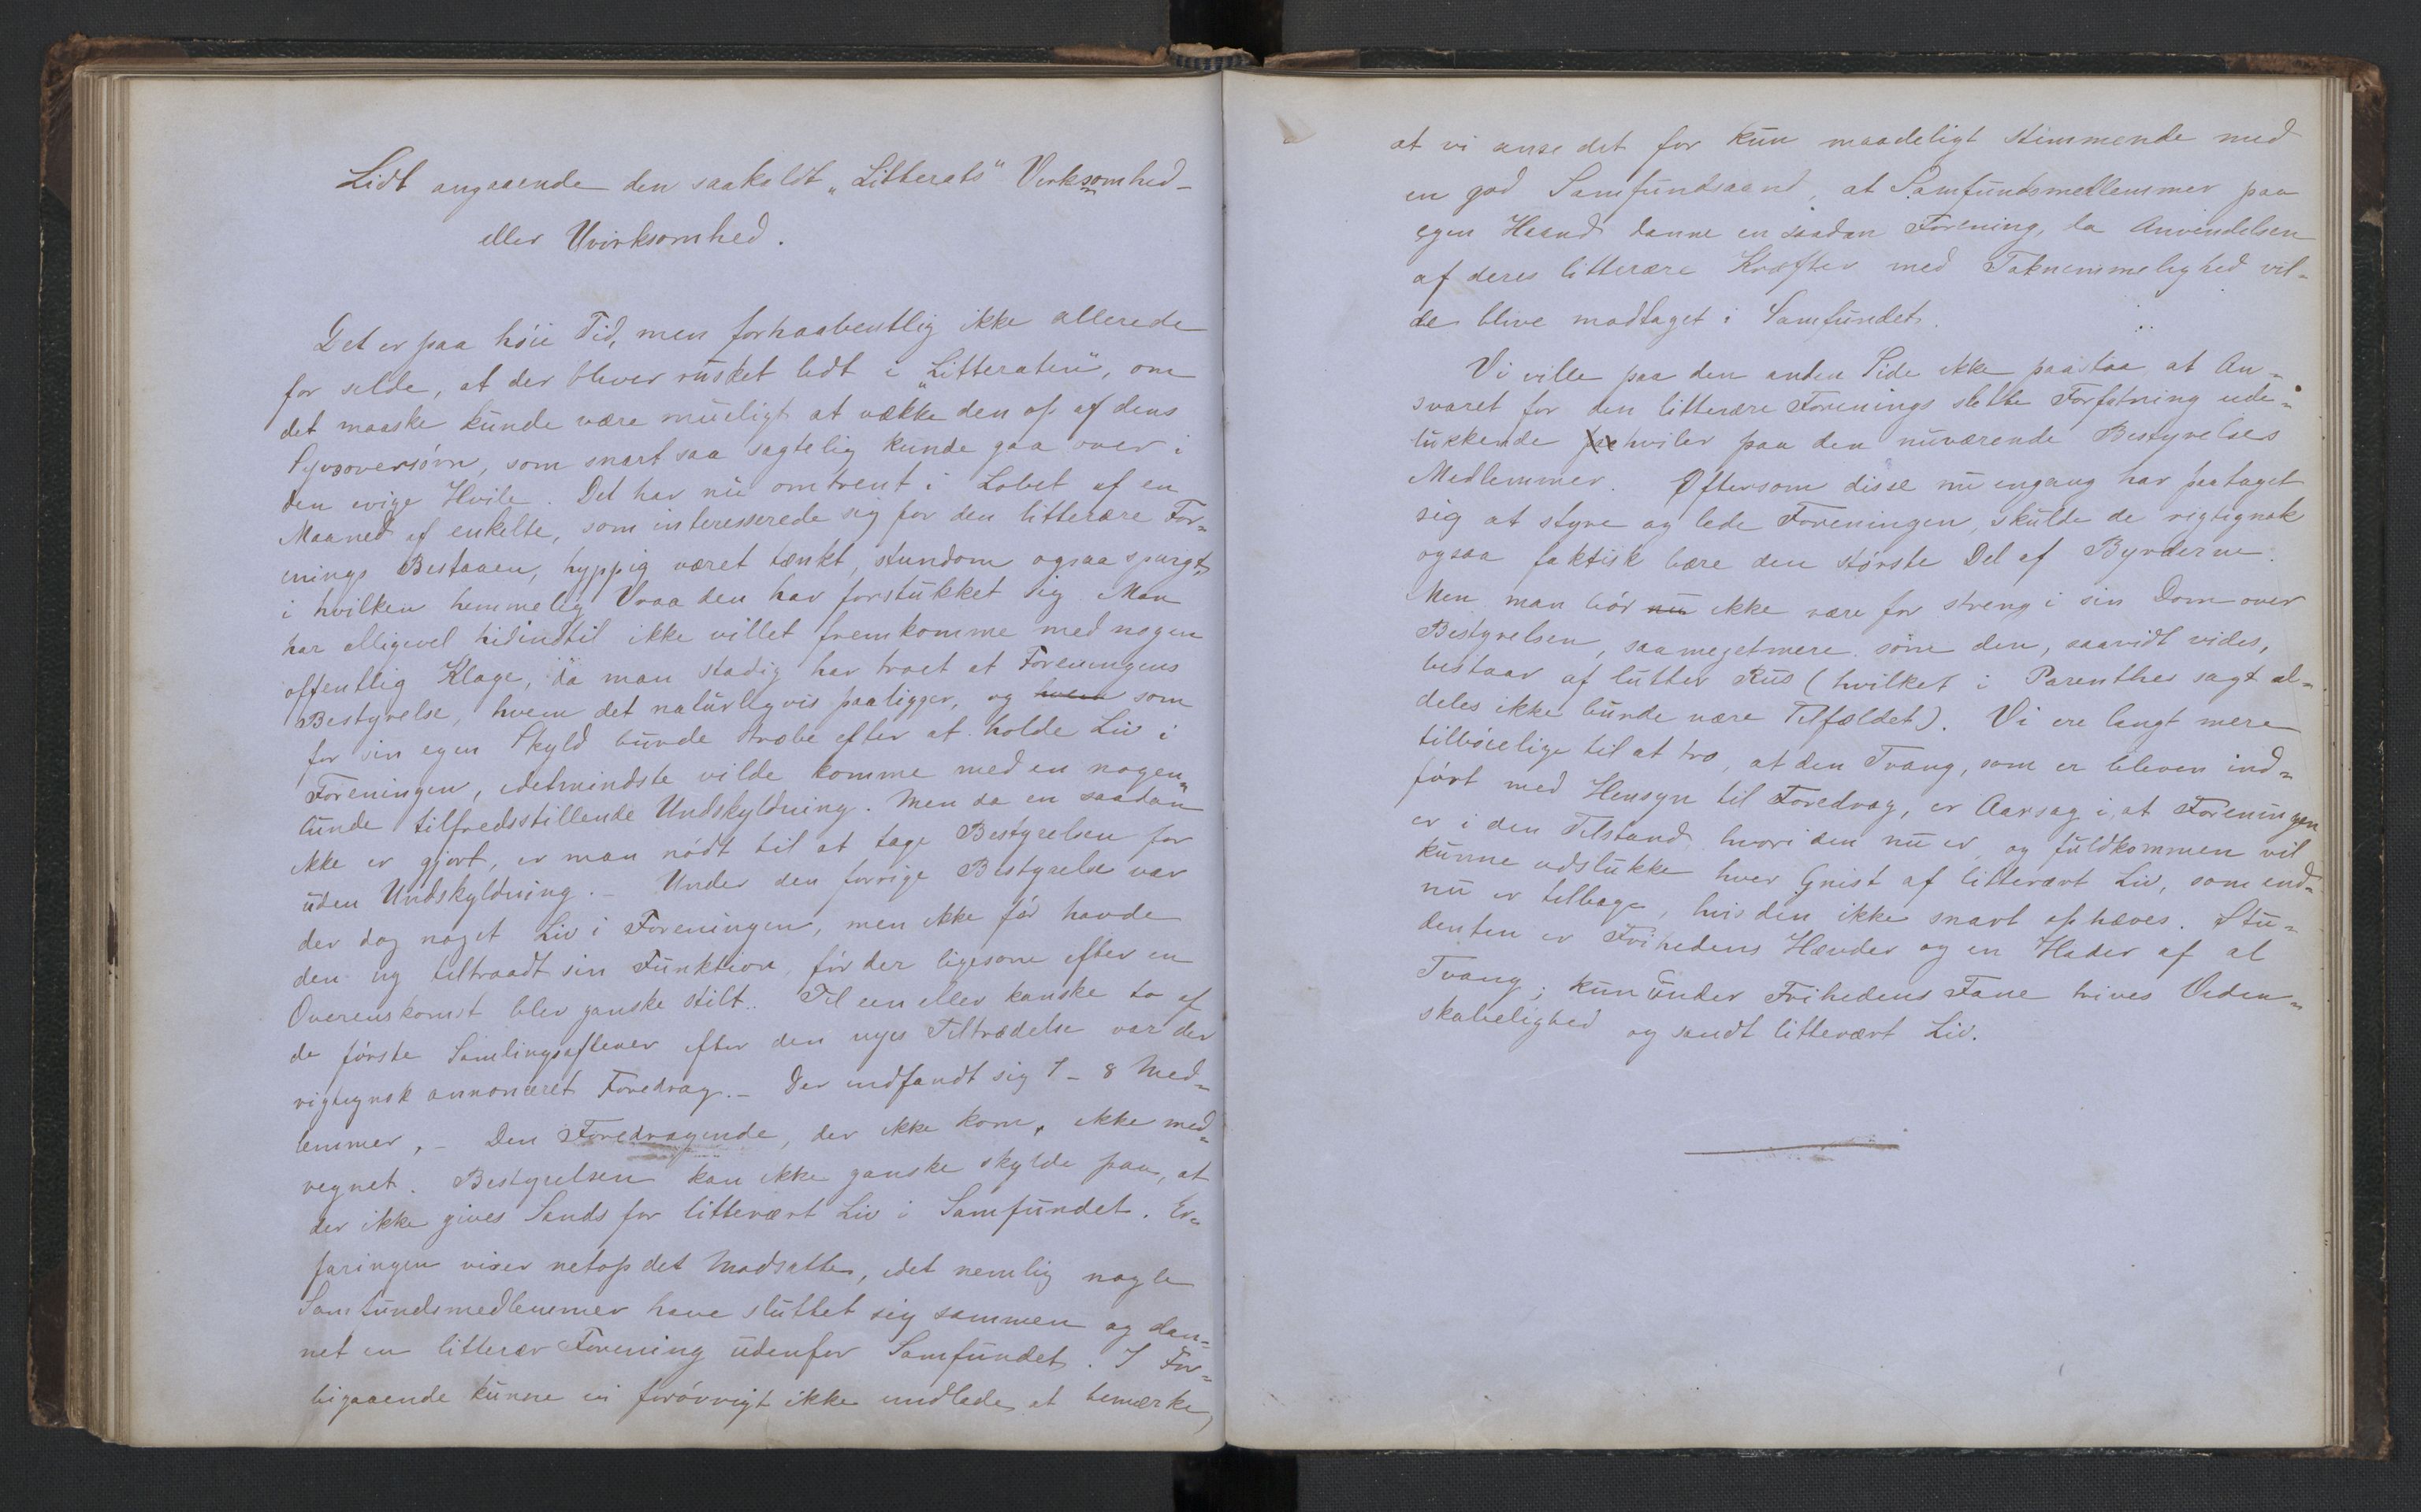 Lidt angaaende den saakaldt „Litterats" Virksomhed-
eller Uvirksomhed.
Det er paa høie Tid, men forhaabentlig ikke allerede
for silde, at der bliver rusket lidt i „Litteraten", om
det maaske kunde være mueligt at vække den op af dens
Syvsoversøvn, som snart saa sagtelig kunde gaa over i
den evige Hvile. Det har nu omtrent i Løbet af en
Maaned af enkelte, som interesserede sig for den litterære For-
enings Bestaaen, hyppig været tænkt, stundom ogsaa spurgt,
i hvilken hemmelig Vraa den har forstukket sig. Man
har alligevel hidindtil ikke villet fremkomme med nogen
offentlig Klage, da man stadig har troet at Foreningens
Bestyrelse, hvem det naturligvis paaligger, og hvem som
for sin egen Skyld burde stræbe efter at holde Liv i
Foreningen, idetmindste vilde komme med en nogen-
lunde tilfredsstillende Undskyldning. Men da en saadan
ikke er gjort, er man nødt til at tage Bestyrelsen for
uden Undskyldning. – Under den forrige Bestyrelse var
der dog noget Liv i Foreningen, men ikke før havde
den ny tiltraadt sin Funktion, før der ligesom efter en
Overenskomst blev ganske stilt. Til een eller kanske to af
de første Samlingsaftener efter den nyes Tiltrædelse var der
rigtignok annonceret Foredrag. – Der indfandt sig 7 – 8 Med-
lemmer, – Den Foredragende, der ikke kom, ikke med-
regnet. Bestyrelsen kan ikke ganske skylde paa, at
der ikke gives Sands for litterært Liv i Samfundet. Er-
faringen viser netop det Modsatte, idet nemlig nogle
Samfundsmedlemmer have sluttet sig sammen og dan-
net en litterær Forening udenfor Samfundet. I For-
bigaaende kunne vi forøvrigt ikke undlade at bemærke,
at vi anse det for kun maadeligt stimmende med
en god Samfundsaand, at Samfundsmedlemmer paa
egen Haand danne en saadan Forening, da Anvendelsen
af deres litterære Kræfter med Taknemmelighed vil-
de blive modtaget i Samfundet.
Vi ville paa den anden Side ikke paastaa at An-
svaret for den litterære Forenings slette Forfatning ude-
lukkende paa hviler paa den nuværende Bestyrelses
Medlemmer. Eftersom disse nu engang har paataget
sig at styre og lede Foreningen, skulde de rigtignok
ogsaa faktisk bære den største Del af Byrderne.
Men man bør nu ikke være for streng i sin Dom over
Bestyrelsen, saameget mere som den, saavidt vides,
bestaar af lutter Rus (hvilket i Parenthes sagt al-
deles ikke burde være Tilfældet). Vi ere langt mere
tilbøielige til at tro, at den Tvang, som er bleven ind-
ført med Hensyn til Foredrag, er Aarsag i, at Foreningen
er i den Tilstand hvori den nu er, og fuldkommen vil
kunne udslukke hver Gnist af litterært Liv, som end-
nu er tilbage, hvis den ikke snart ophæves. Stu-
denten er Frihedens Hævder og en Hader af al
Tvang; kun under Frihedens Fane trives Viden-
skabelighed og sandt litterært Liv.